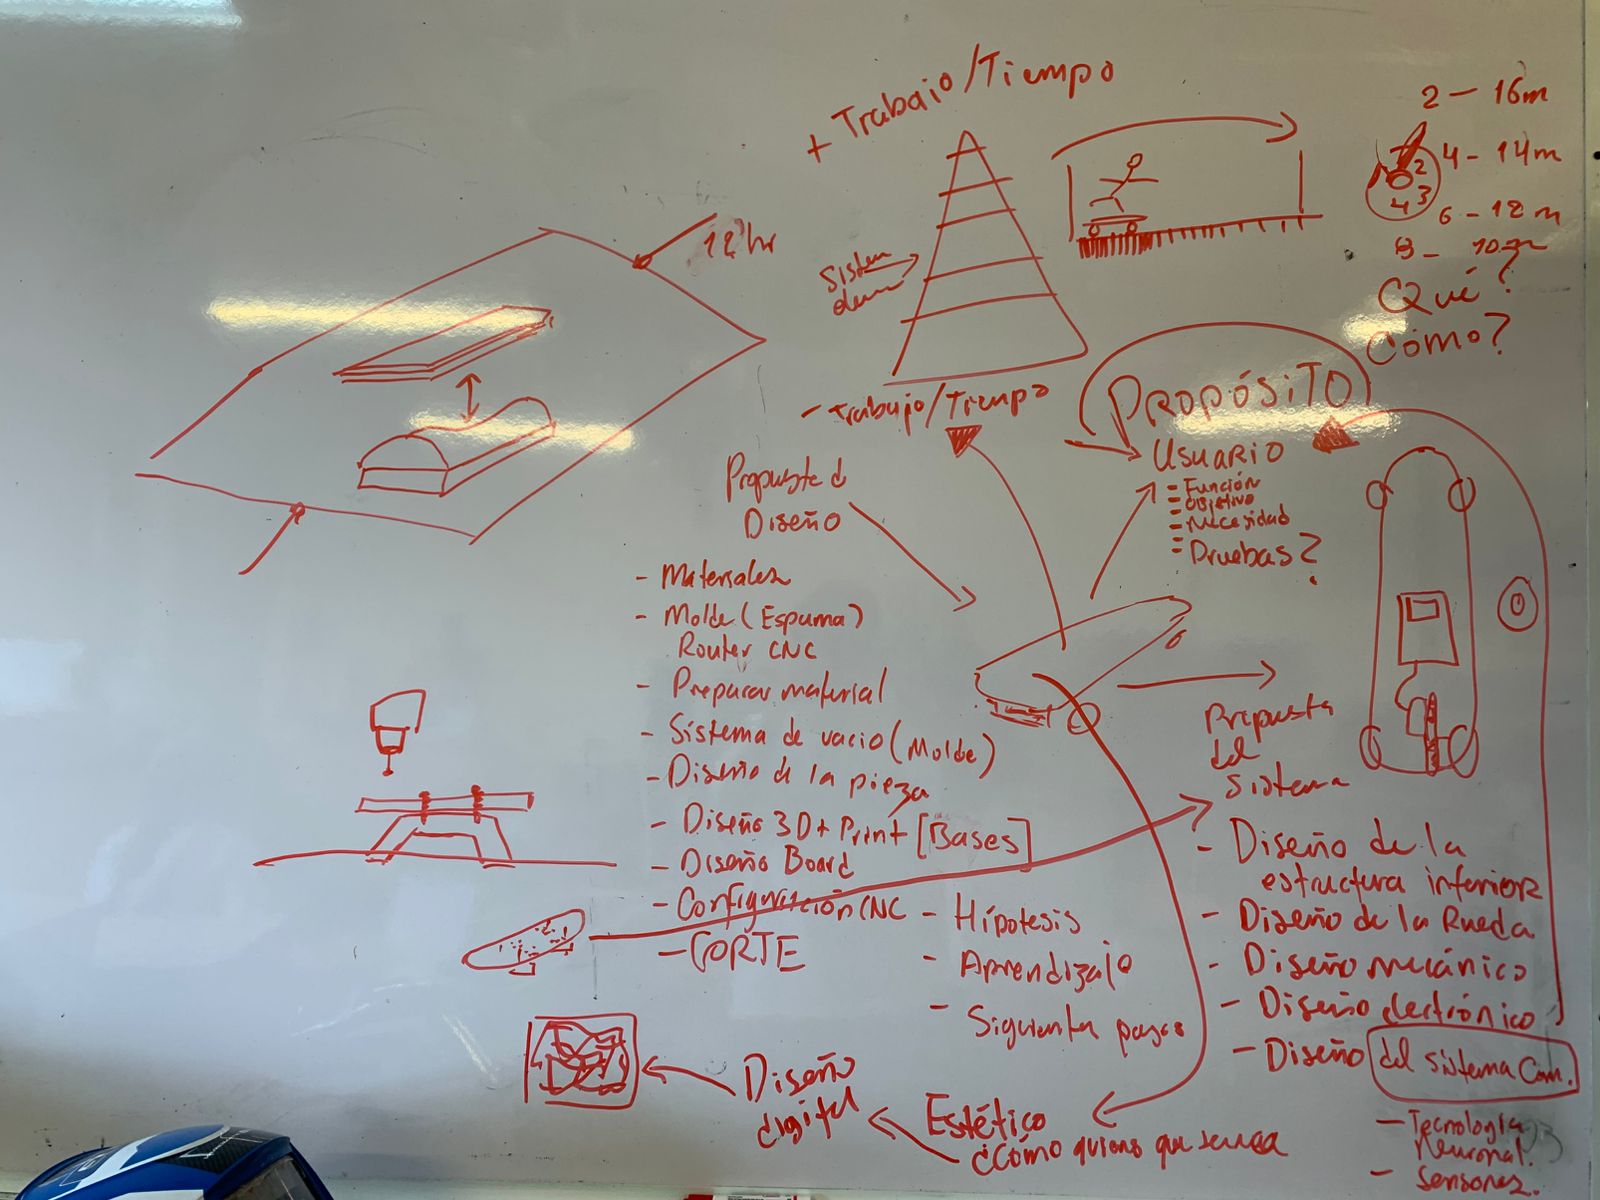 + Trabajo/Tiempo
2 - 16m
4 - 14m
6 - 12m
8 - 10m
2
3
4
12 hr
Sistem
Qué?
Cómo?
- Trabajo/Tiempo
PROPÓSITO
USUARIO
- Función
- Objetivo
- Necesidad
- Pruebas?
Propuesta d
Diseño
- Materiales
- Molde (Espuma)
Router CNC
- Preparar material
- Sistema de vacio (Molde)
- Diseño de la pieza
- Diseño 3D + Print [Bases]
- Diseño Board
- Configuración CNC
- CORTE
- Hipotesis
- Aprendizaje
- Siguientes pasos
Propuesta
del
Sistema
- Diseño de la
estructura inferior
- Diseño de la Rueda
- Diseño mecánico
- Diseño electrónico
- Diseño del sistema Com.
- Tecnología
Neuronal.
- Sensores.
Diseño
digital
Estético
¿Cómo quiero que se vea